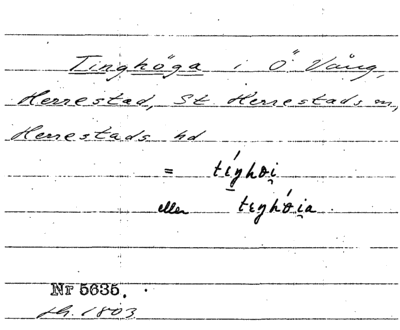 Tinghöga i Ö Vång,
Herrestad, St Herrestads sn,
Herrestads hd
= tíŋhøi̯
eller tıŋhǿi̯a
Nr 5635.
fh. 1803